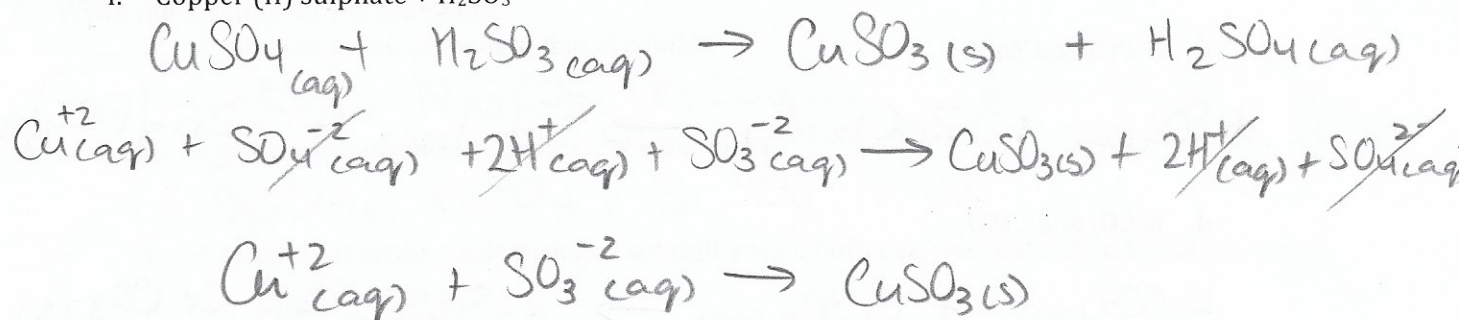 Copper (II) sulphate + H₂SO₃
CuSO₄ (aq) + H₂SO₃ (aq) → CuSO₃ (s) + H₂SO₄ (aq)
Cu⁺² (aq) + SO₄⁻² (aq) + 2H⁺ (aq) + SO₃⁻² (aq) → CuSO₃ (s) + 2H⁺ (aq) + SO₄²⁻ (aq
Cu⁺² (aq) + SO₃⁻² (aq) → CuSO₃ (s)